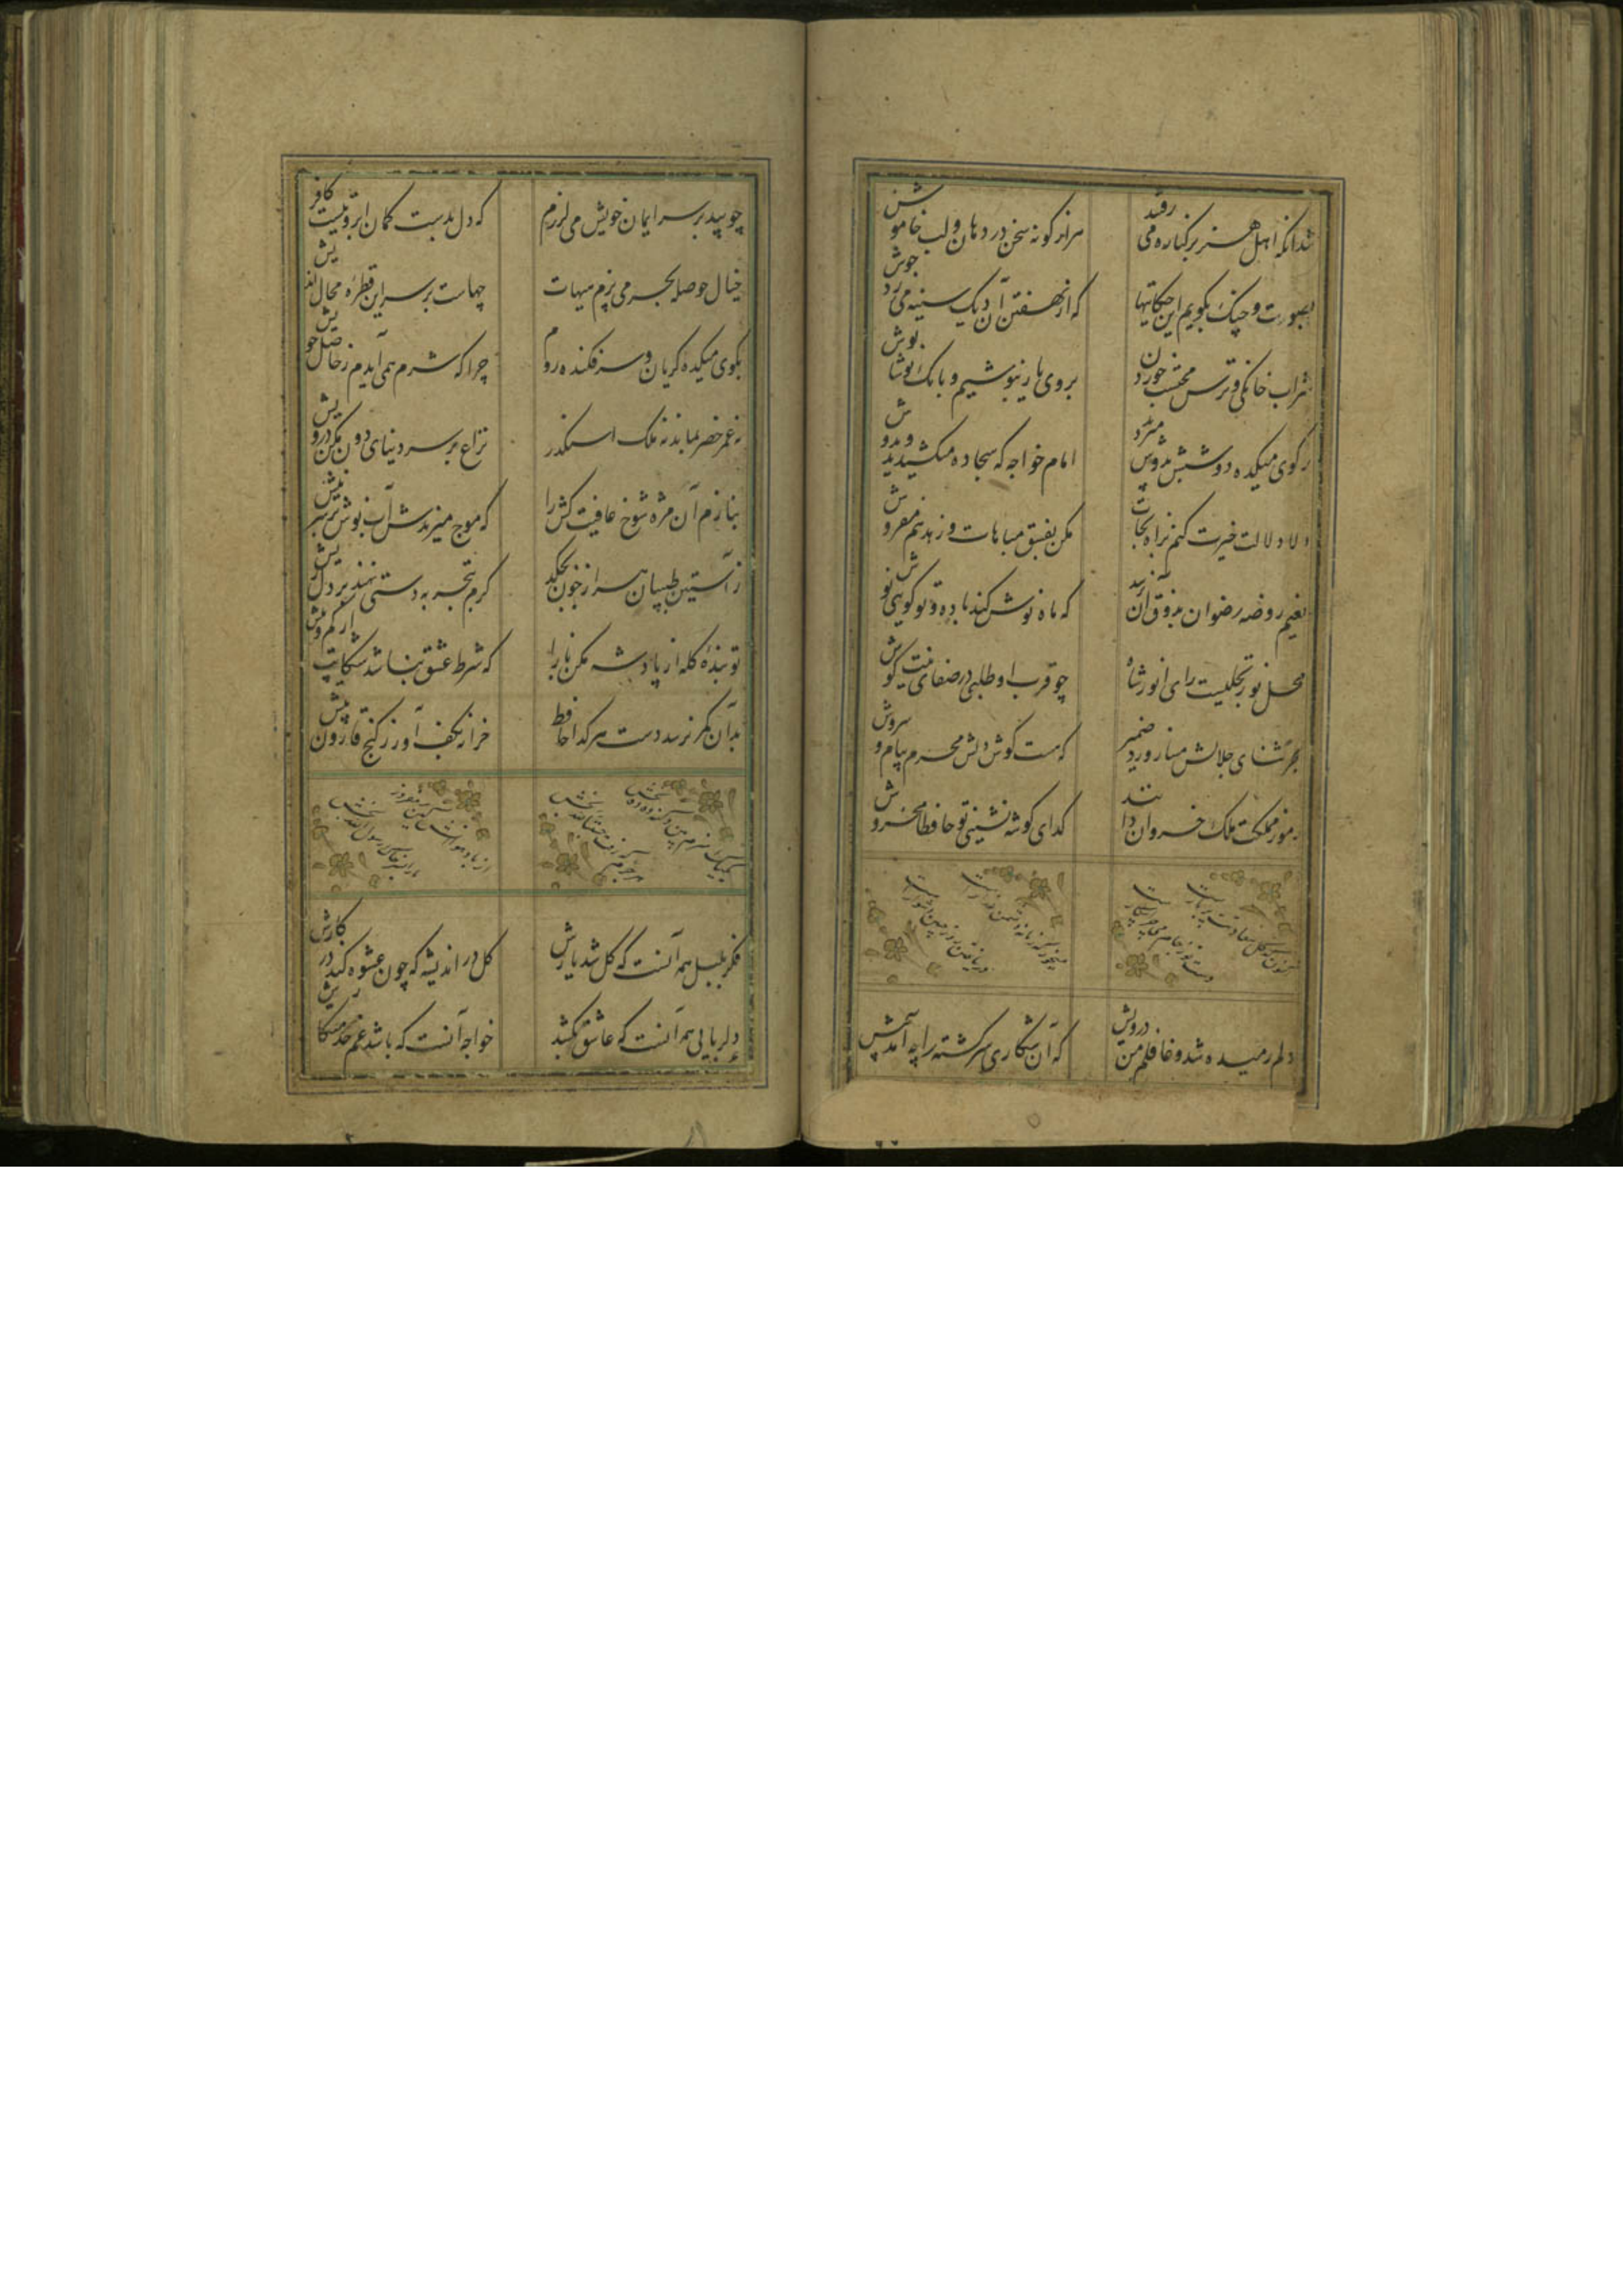 شد آنکه اهل هنر بر کناره می رفتند
هزار گونه سخن در دهان و لب خاموش
بصوت چنگ بگویم این حکایتها
که از نهفتن آن دیک سینه میزد جوش
شراب خانگی و ترس محتسب خوردن
بروی یار بنوشیم و بانک نوشانوش
ز کوی میکده دوشش بدوش میبردند
امام خواجه که سجاده میکشید بدوش
دلا دلالت خیرت کنم براه نجات
مکن بفسق مباهات و زهد هم مفروش
نعیم روضه رضوان بذوق آن نرسد
که ماه نوش کند باده و تو کویی نوش
محل نور تجلیست رای انور شاه
چو قرب او طلبی در صفای نیت کوش
بجز ثنای جلالش مساز ورد ضمیر
که هست کوش دلش محرم پیام سروش
رموز مملکت ملک خسروان دانند
کدای کوشه نشینی تو حافظا مخروش
دلم رمیده شد و غافلم من درویش
که آن شکاری سرکشته را چه آمد پیش
چو بید بر سر ایمان خویش می لرزم
که دل بدست کمان ابروییست کافرکیش
خیال حوصله بحر می پزم هیهات
چهاست بر سر این قطره محال اندیش
بکوی میکده کریان و سرفکنده روم
چرا که شرم همی آیدم ز حاصل خویش
نه عمر خضر بماند نه ملک اسکندر
نزاع بر سر دنیای دون مکن درویش
بنازم آن مژه شوخ عافیت کش را
که موج میزندش آب نوش بر سر نیش
ز آستین طبیبان هزار خون بچکد
کرم بتجربه دستی نهند بر دل ریش
تو بنده کله از پادشه مکن یارا
که شرط عشق نباشد شکایت از کم و بیش
بدان کمر نرسد دست هر کدا حافظ
خزانه بکف آور ز کنج قارون بیش
فکر بلبل همه آنست که کل شد یارش
کل در اندیشه که چون عشوه کند در کارش
دلربایی همه آنست که عاشق بکشند
خواجه آنست که باشد غم خدمتکارش